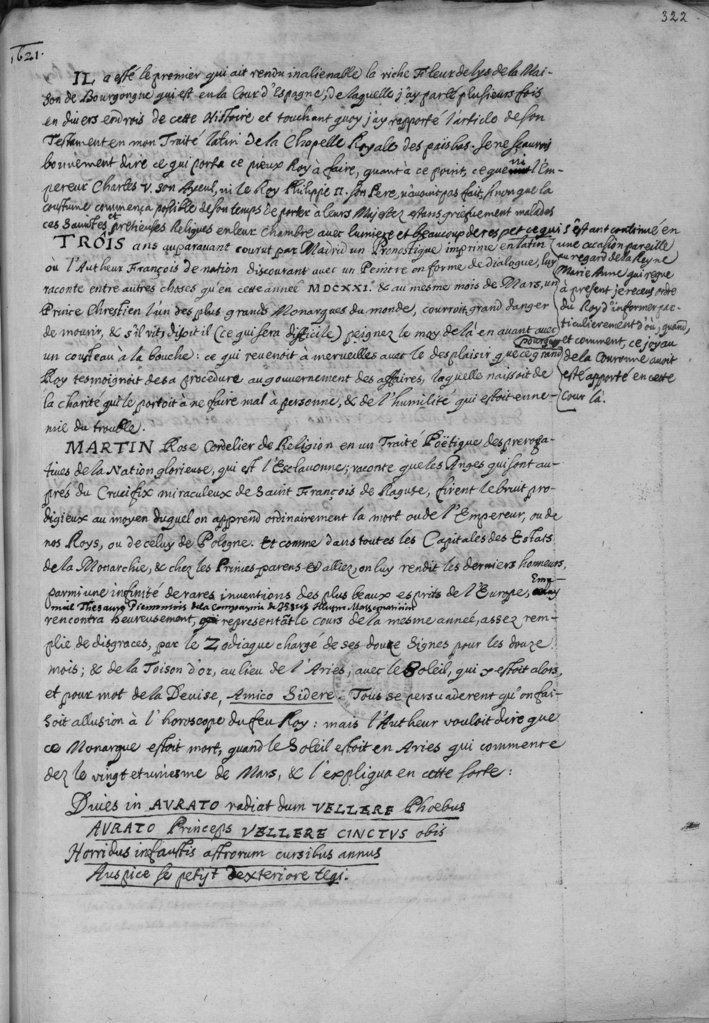 322
1621.
IL a esté le premier qui ait rendu inalienable la riche Fleur de lys de la Mai-
son de Bourgongne qui est en la Cour d'Espagne, de laquelle j'ay parlé plusieurs fois
en divers endrois de cette Histoire et touchant quoy j'ay rapporté l'article de son
Testament en mon Traité latin de la Chapelle Royale des païs bas. Je ne sçaurois
bonnement dire ce qui porta ce pieux Roy à faire, quant a ce point, ce que ni l'Em-
pereur Charles V. son Ayeul, ni le Roy Philippe II. son Pere, n'avoint pas fait, sinon que la
coustume commença possible de son temps de porter a leurs Majestez estans griefvement malades
ces Sainctes et pretieuses Reliques en leur Chambre avec lumiere et beaucoup de respect ce qui
s'estant continué en
une occasion pareille
au regard de la Reyne
Marie Anne qui regne
à present, je receus ordre
du Roy d'informer par-
ticulierement d'où, quand,
et comment, ce joyau
de la Couronne avoit
esté apporté en cette
Cour la.
TROIS ans auparavant courut par Madrid un Pronostique imprimé en latin
où l'Autheur François de nation discourant avec un Peintre en forme de dialogue, luy
raconte entre autres choses qu'en cette année MDCXXI. & au mesme mois de Mars, un
Prince Chrestien l'un des plus grands Monarques du monde, courroit grand danger
de mourir, & s'il vit, disoit il (ce qui sera difficile) peignez le moy de là en avant avec
un cousteau à la bouche: ce qui revenoit à merveilles avec le desplaisir que ce grand
Roy tesmoignoit de sa procedure au gouvernement des affaires, laquelle naissoit de
la charité qui le portoit à ne faire mal à personne, & de l'humilité qui estoit enne-
mie du trouble.
MARTIN Rose Cordelier de Religion en un Traité Poëtique des preroga-
tives de la Nation glorieuse, qui est l'Esclavonne; raconte que les Anges qui sont au-
prés du Crucifix miraculeux de Saint François de Raguse, firent le bruit pro-
digieux au moyen duquel on apprend ordinairement la mort ou de l'Empereur, ou de
nos Roys, ou de celuy de Pologne. Et comme dans toutes les Capitales des Estats
de la Monarchie, & chez les Princes parens & alliez, on luy rendit les derniers honneurs,
parmi une infinité de rares inventions des plus beaux esprits de l'Europe, Ema-
nuel Thesauro Piemontois de la Compagnie de Jesus
rencontra heureusement, representãt le cours de la mesme année, assez rem-
plie de disgraces, par le Zodiaque chargé de ses douze Signes pour les douze
mois; & de la Toison d'or, au lieu de l'Aries, avec le Soleil, qui y estoit alors,
et pour mot de la Devise, Amico Sidere. Tous se persuaderent qu'on fai-
soit allusion à l'horoscope du feu Roy: mais l'Autheur vouloit dire que
ce Monarque estoit mort, quand le Soleil estoit en Aries qui commence
dez le vingt et uniesme de Mars, & l'expliqua en cette sorte:
Dives in AVRATO radiat dum VELLERE Phoebus
AVRATO Princeps VELLERE CINCTVS obis
Horridus infaustis astrorum cursibus annus
Auspice se petijt dexteriore tegi.